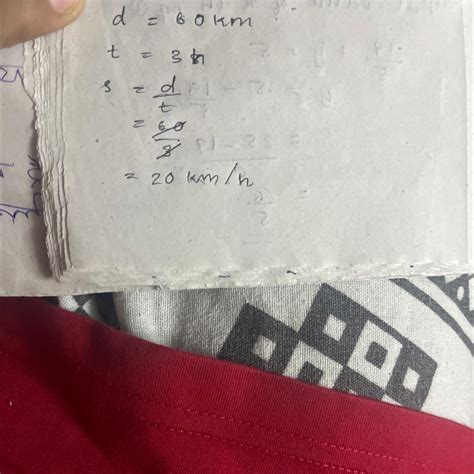 d = 60 km
t = 3h
s = d/t
= 60/3
= 20 km/h